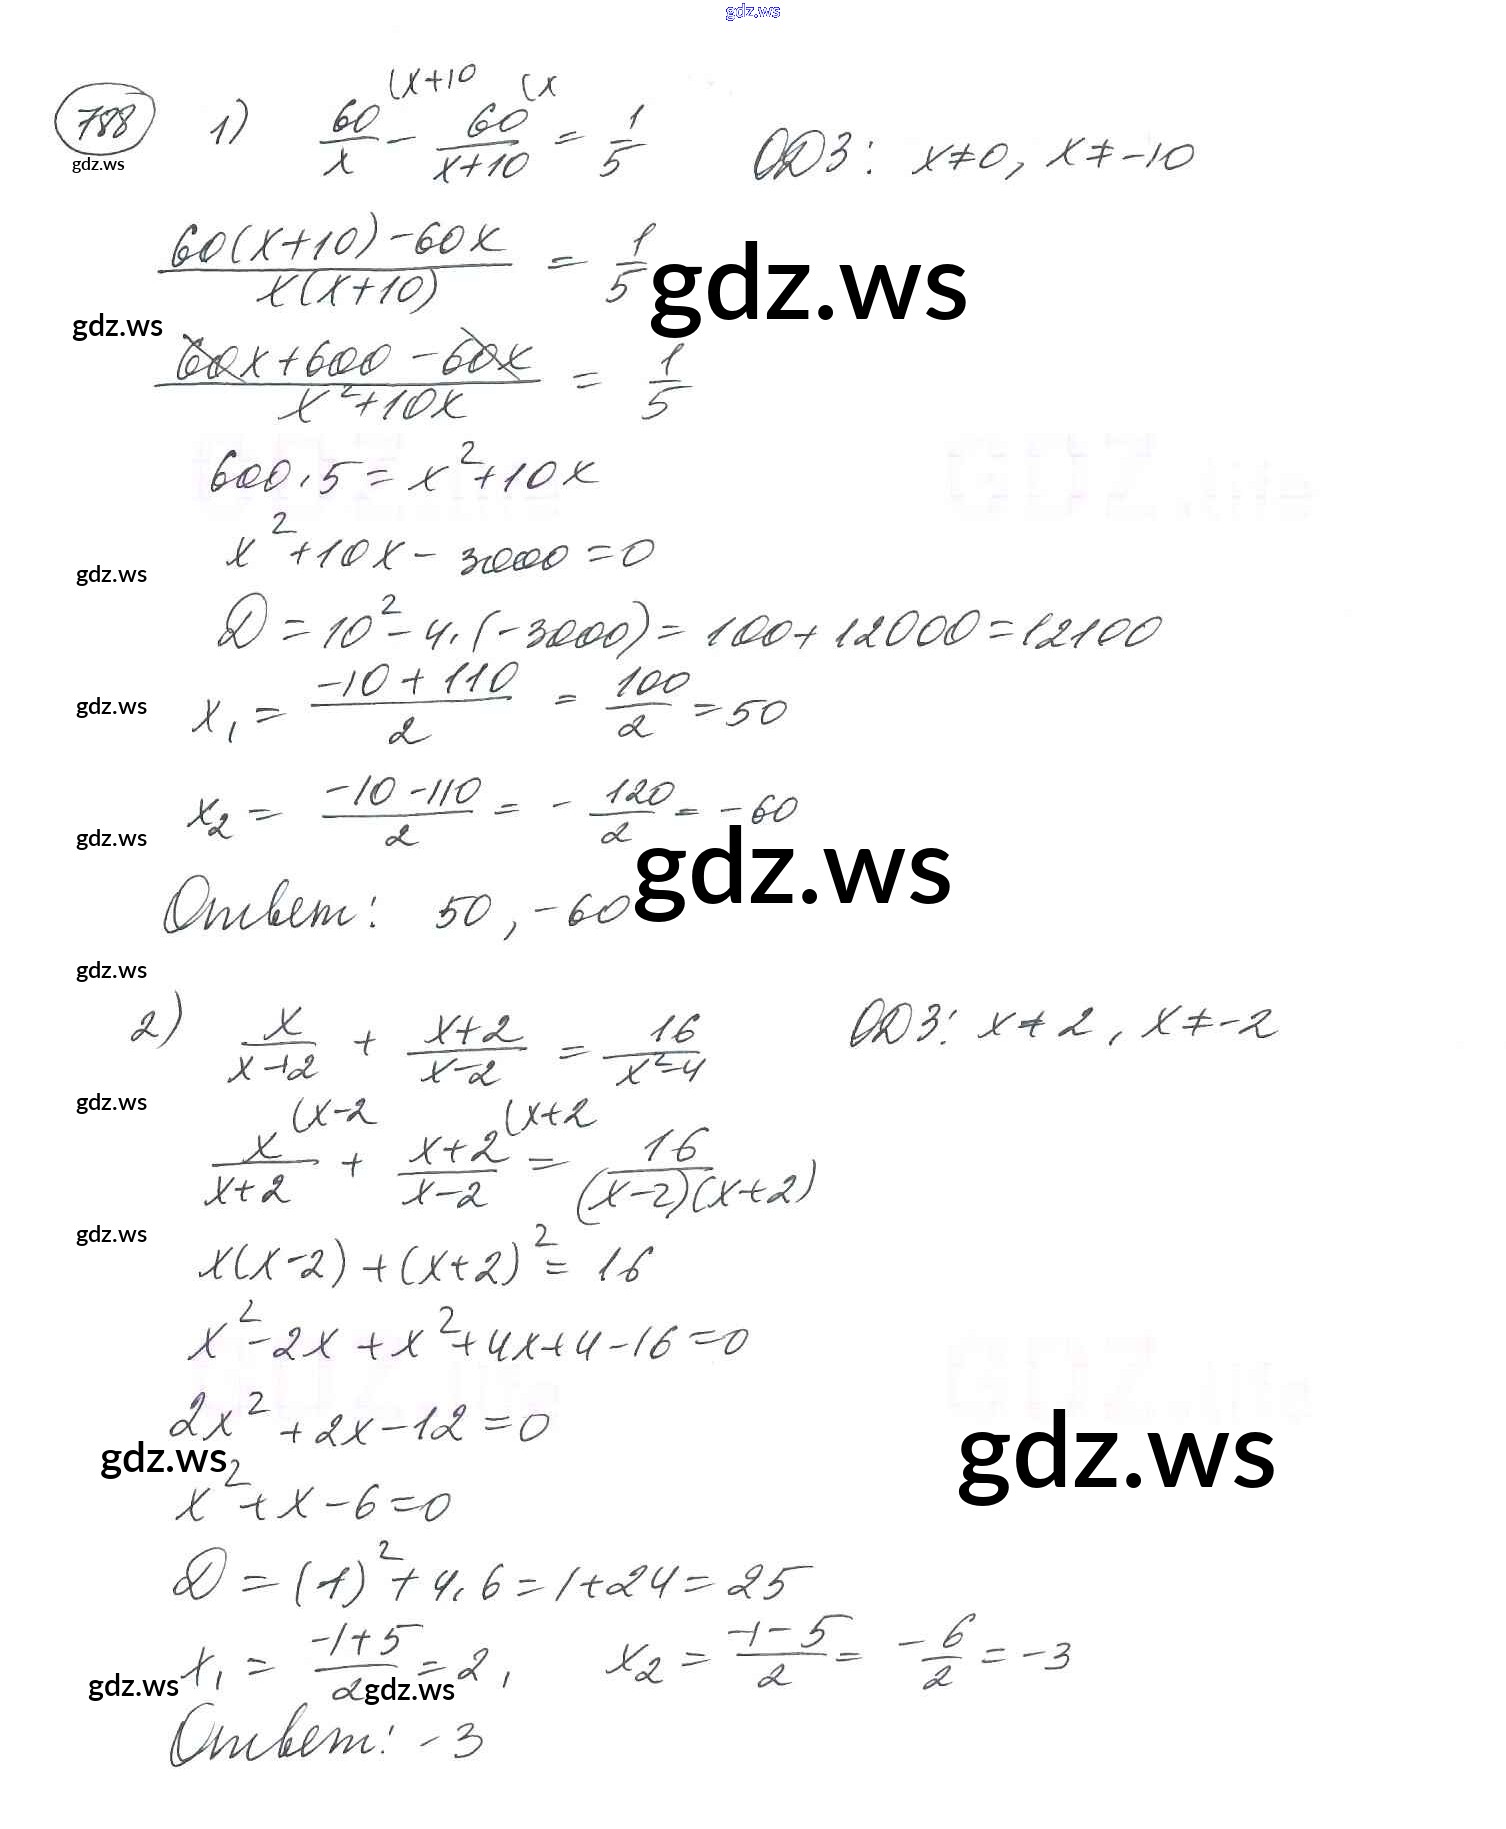 gdz.ws
788 1) 60/x (x+10 − 60/(x+10) (x = 1/5 ОДЗ: x≠0, x≠−10
gdz.ws
(60(x+10)−60x)/(x(x+10)) = 1/5
gdz.ws
gdz.ws
(60x+600−60x)/(x²+10x) = 1/5
600·5=x²+10x
x²+10x−3000=0
gdz.ws
D=10²−4·(−3000)=100+12000=12100
x₁=(−10+110)/2 = 100/2 =50
gdz.ws
x₂= (−10−110)/2 = −120/2 = −60
gdz.ws
gdz.ws
Ответ: 50, −60
gdz.ws
2) x/(x+2) + (x+2)/(x−2) = 16/(x²−4) ОДЗ: x≠2, x≠−2
gdz.ws
x/(x+2) (x−2 + (x+2)/(x−2) (x+2 = 16/((x−2)(x+2))
gdz.ws
x(x−2)+(x+2)²=16
x²−2x+x²+4x+4−16=0
2x²+2x−12=0
gdz.ws
gdz.ws
x²+x−6=0
D=(1)²+4·6=1+24=25
x₁= (−1+5)/2 =2, x₂= (−1−5)/2 = −6/2 = −3
gdz.ws
gdz.ws
Ответ: −3